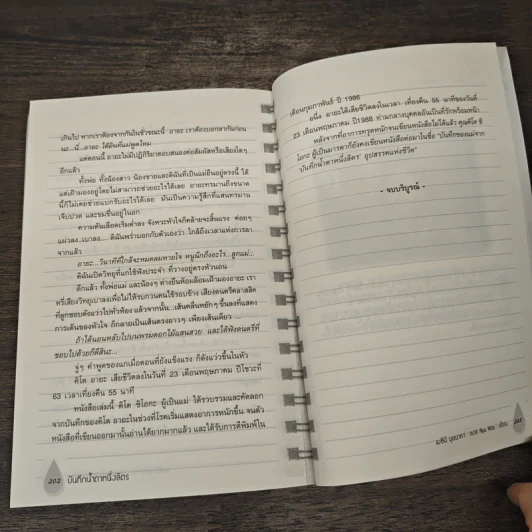 เกินไป หากเราต้องจากกันในชั่วขณะนี้ อายะ เราต้องบอกลากันก่อน
นะ...นี่...อายะ ได้ยินที่แม่พูดไหม
แต่ตอนนี้ อายะไม่มีปฏิกิริยาตอบสนองต่อสัมผัสหรือเสียงใดๆ
อีกแล้ว
ทั้งพ่อ ทั้งน้องสาว น้องชายและดิฉันที่เป็นแม่ยืนอยู่ตรงนี้ ได้
แต่เฝ้ามองอยู่โดยไม่สามารถช่วยอะไรได้เลย อายะทรมานถึงขนาด
นี้ก็ไม่เคยช่วยแบกรับอะไรได้เลย มันเป็นความรู้สึกที่แสนทรมาน
เจ็บปวด และขมขื่นอยู่ในอก
ความดันเลือดเริ่มต่ำลง จังหวะหัวใจก็คล้ายจะสิ้นแรง ค่อยๆ
แผ่วลง...เบาลง... ดิฉันพร่ำบอกกับตัวเองว่า ใกล้ถึงเวลาแห่งการลา
จากแล้ว
อายะ...วินาทีที่ใกล้จะหมดลมหายใจ หนูนึกถึงอะไร...ลูกแม่...
ดิฉันเปิดวิทยุที่แกใช้ฟังประจำ ที่วางอยู่ตรงหัวนอน
ดึกแล้ว ทั้งพ่อแม่ และน้องๆ ต่างยืนห้อมล้อมเฝ้ามองอายะ เรา
หรี่เสียงวิทยุเบาลงเพื่อไม่ให้รบกวนคนไข้รอบข้าง เสียงดนตรีคลาสสิค
ที่ลูกชอบดังแว่วไปทั่วห้อง แล้วจากนั้น...เส้นคลื่นหยักๆ ขึ้นลงที่แสดง
การเต้นของหัวใจ ก็กลายเป็นเส้นตรงยาวๆ เพียงเส้นเดียว
ถ้าได้นอนหลับไปบนพรมดอกไม้แสนสวย และได้ฟังดนตรีที่
ชอบไปด้วยก็ดีสินะ...
จู่ๆ คำพูดของแกเมื่อตอนที่ยังแข็งแรง ก็ดังแว่วขึ้นในหัว
คิโต อายะ เสียชีวิตลงในวันที่ 23 เดือนพฤษภาคม ปีโชวะที่
63 เวลาเที่ยงคืน 55 นาที
หนังสือเล่มนี้ คิโต ชิโอกะ ผู้เป็นแม่ ได้รวบรวมและคัดลอก
จากบันทึกของคิโต อายะในช่วงที่โรคเริ่มแสดงอาการหนักขึ้น จนตัว
หนังสือที่เขียนออกมานั้นอ่านได้ยากมากแล้ว และได้รับการตีพิมพ์ใน
202 บันทึกน้ำตาหนึ่งลิตร
เดือนกุมภาพันธ์ ปี 1986
อนึ่ง อายะได้เสียชีวิตลงในเวลา เที่ยงคืน 55 นาทีของวันที่
23 เดือนพฤษภาคม ปี1988 ท่ามกลางบุคคลอันเป็นที่รักพร้อมหน้า
หลังจากที่อาการทรุดหนักจนเขียนหนังสือไม่ได้แล้ว คุณคิโต ชิ
โอกะ ผู้เป็นมารดาก็ยังคงเขียนหนังสือต่อมาในชื่อ "บันทึกของแม่จาก
'บันทึกน้ำตาหนึ่งลิตร' อุปสรรคแห่งชีวิต"
- จบบริบูรณ์ -